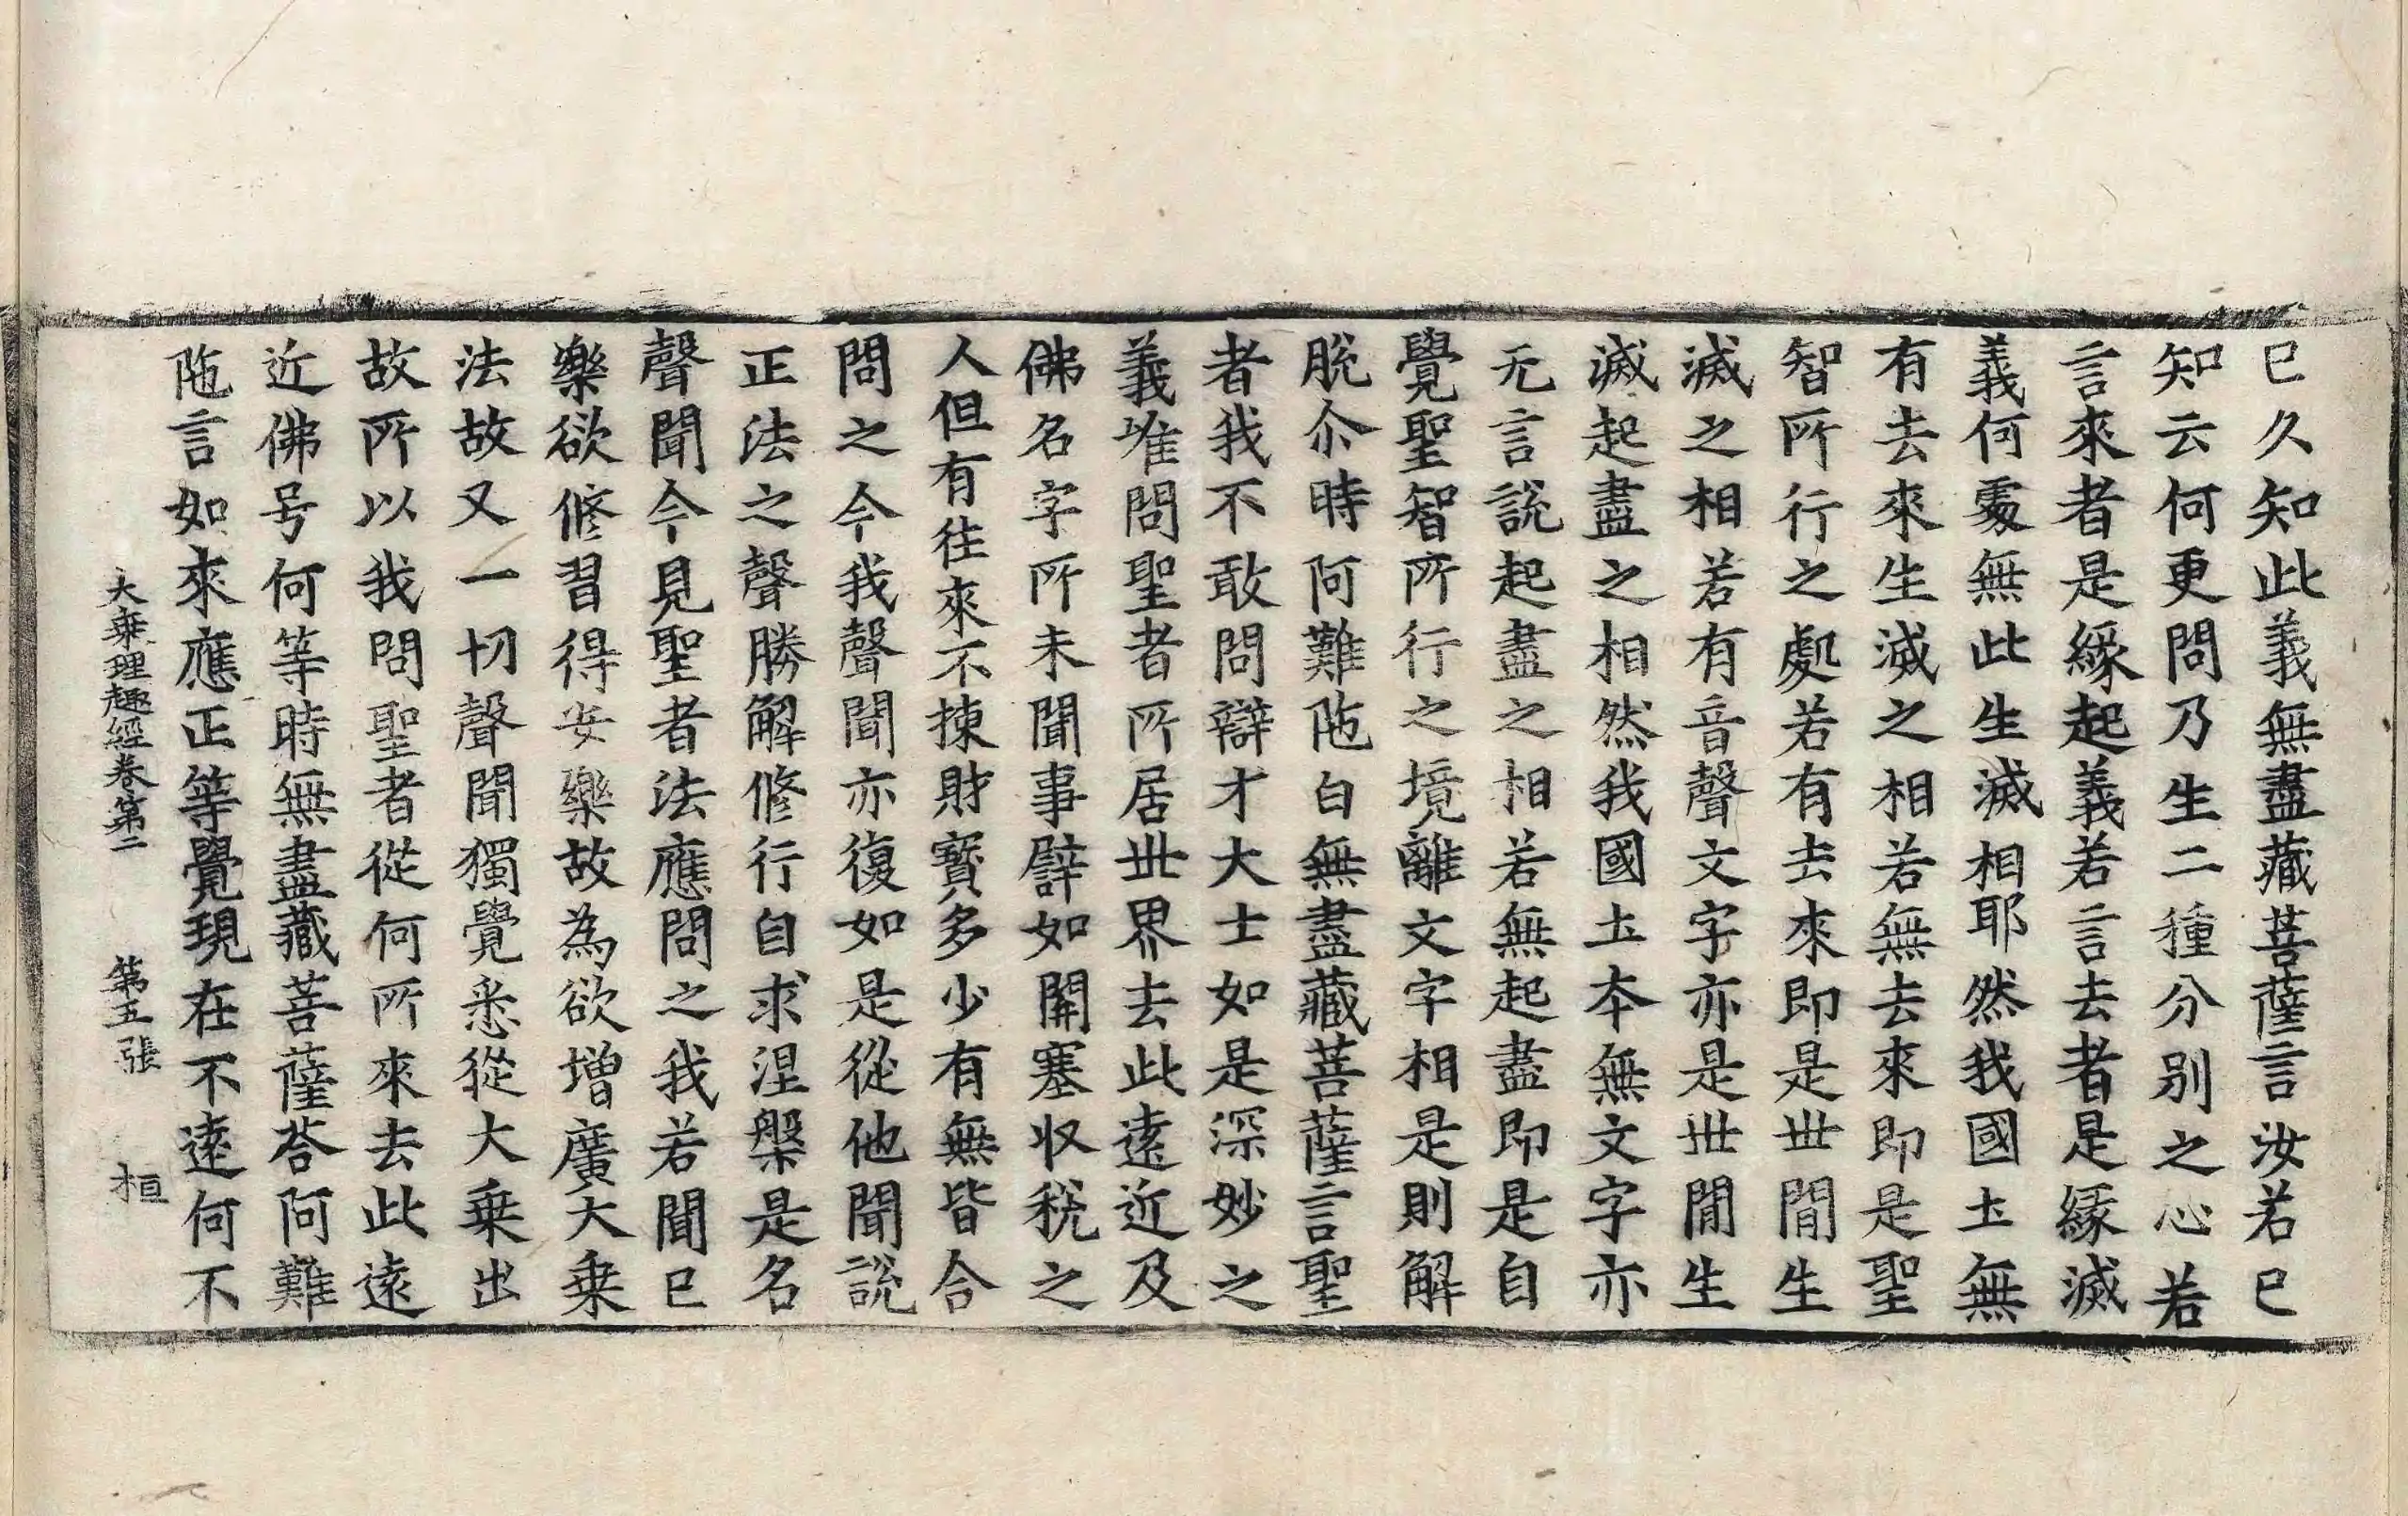 已久知此義無盡藏菩薩言汝若已
知云何更問乃生二種分別之心若
言來者是緣起義若言去者是緣滅
義何處無此生滅相耶然我國土無
有去來生滅之相若無去來即是聖
智所行之處若有去來即是世間生
滅之相若有音聲文字亦是世間生
滅起盡之相然我國土本無文字亦
无言說起盡之相若無起盡即是自
覺聖智所行之境離文字相是則解
脫尒時阿難陁白無盡藏菩薩言聖
者我不敢問辯才大士如是深妙之
義唯問聖者所居世界去此遠近及
佛名字所未聞事譬如關塞收稅之
人但有往來不揀財寶多少有無皆合
問之今我聲聞亦復如是從他聞說
正法之聲勝解修行自求涅槃是名
聲聞今見聖者法應問之我若聞已
樂欲修習得安樂故為欲增廣大乗
法故又一切聲聞獨覺悉從大乗出
故所以我問聖者從何所來去此遠
近佛号何等時無盡藏菩薩荅阿難
陁言如來應正等覺現在不遠何不
大乗理趣經卷第二 第五張 桓